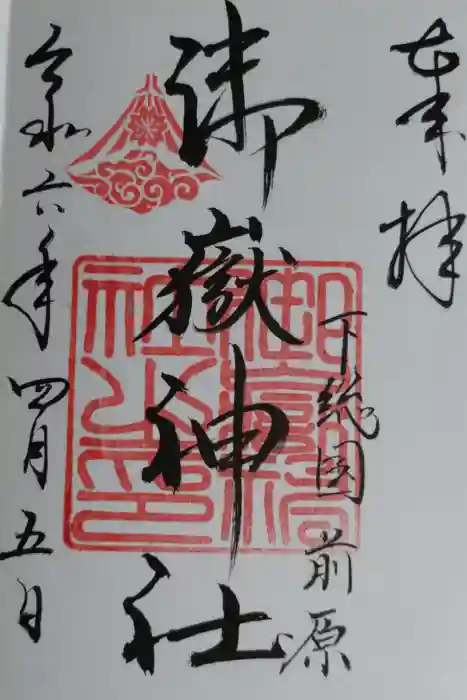 奉拝
下総国 前原
御嶽神社
令和六年四月五日